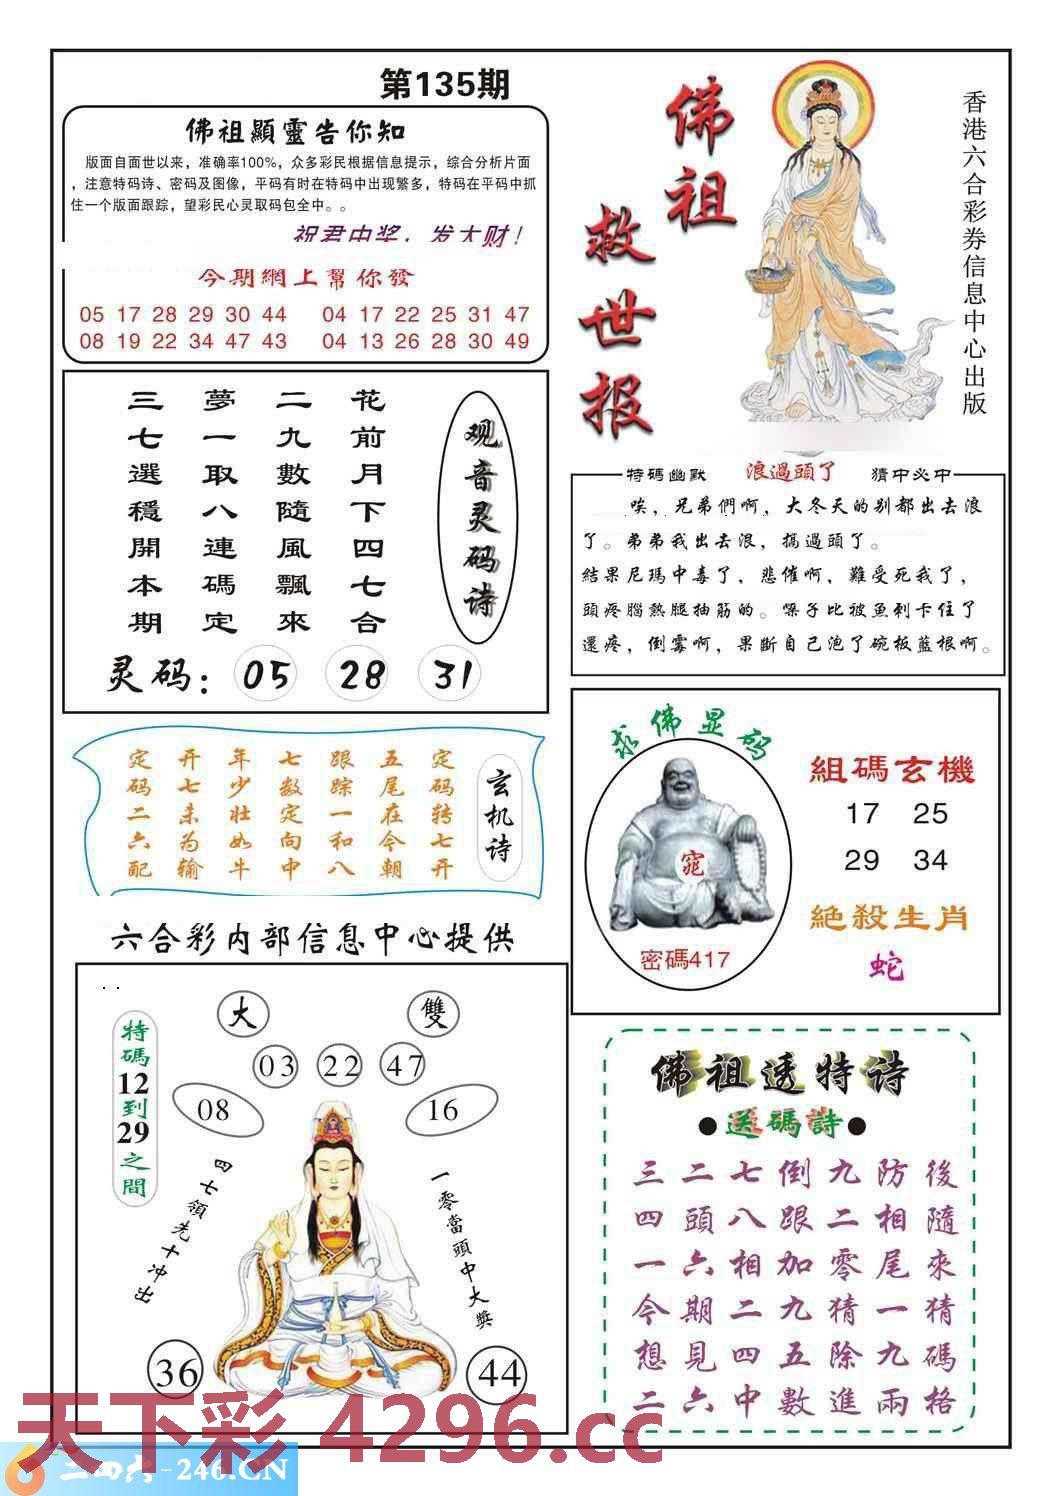 第135期
佛祖顯靈告你知
版面自面世以来，准确率100%，众多彩民根据信息提示，综合分析片面
，注意特码诗、密码及图像，平码有时在特码中出现繁多，特码在平码中抓
住一个版面跟踪，望彩民心灵取码包全中。。
祝君中奖，发大财！
今期網上幫你發
05 17 28 29 30 44 04 17 22 25 31 47
08 19 22 34 47 43 04 13 26 28 30 49
佛祖
救世报
香港六合彩券信息中心出版
观音灵码诗
花前月下四七合
二九數隨風飄來
夢一取八連碼定
三七選穩開本期
灵码：05 28 31
特碼幽默 浪過頭了 猜中必中
唉，兄弟們啊，大冬天的别都出去浪
了。弟弟我出去浪，搞過頭了。
結果尼瑪中毒了，悲催啊，難受死我了，
頭疼腦熱腿抽筋的。嗓子比被魚刺卡住了
還疼，倒霉啊，果斷自己泡了碗板藍根啊。
玄机诗
定码转七开
五尾在今朝
跟踪一和八
七数定向中
年少壮如牛
开七未为输
定码二六配
求佛显码
窕
密碼417
組碼玄機
17 25
29 34
絕殺生肖
蛇
六合彩内部信息中心提供
特碼12到29之間
大 雙
03 22 47
08 16
四七領先十冲出
一零當頭中大獎
36 44
佛祖透特诗
●送碼詩●
三二七倒九防後
四頭八跟二相隨
一六相加零尾來
今期二九猜一猜
想見四五除九碼
二六中數進兩格
天下彩 4296.cc
二四六-246.CN